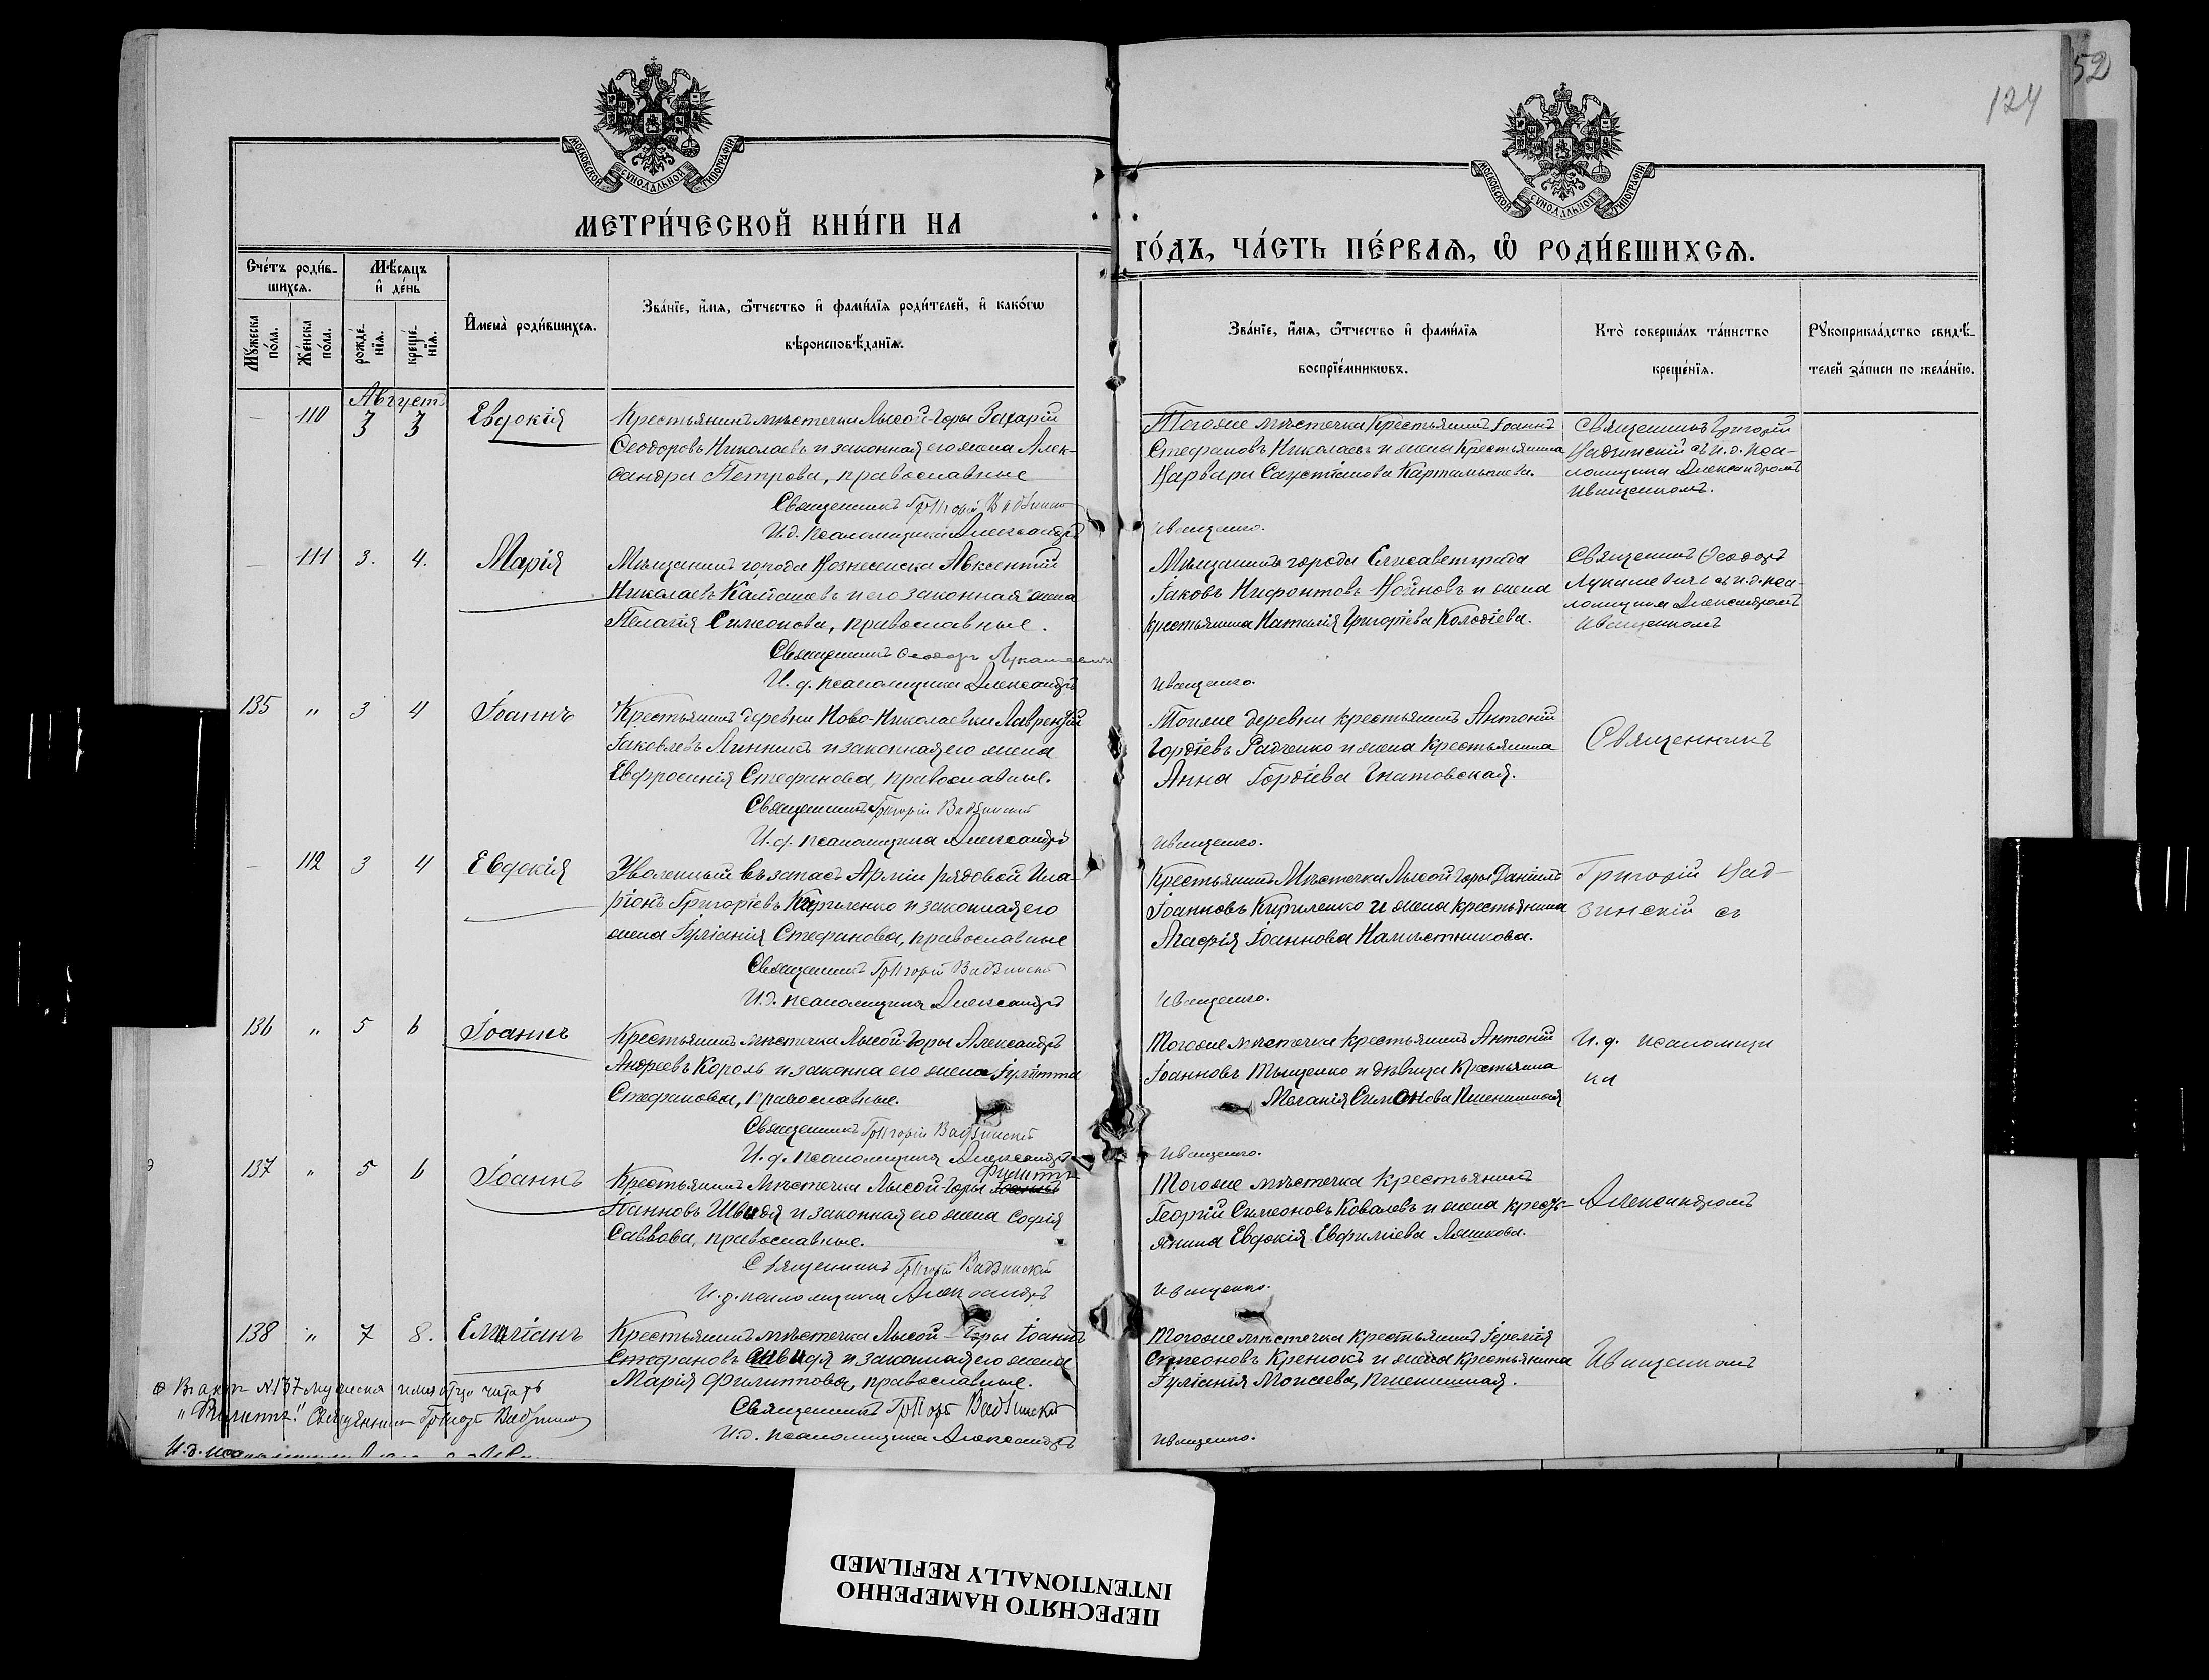 52
124
МОСКОВСКОЙ СѴНОДАЛЬНОЙ ТИПОГРАФІИ
МОСКОВСКОЙ СѴНОДАЛЬНОЙ ТИПОГРАФІИ
МЕТРИ́ЧЕСКОЙ КНИ́ГИ НА
ГО́ДЪ, ЧА́СТЬ ПЕ́РВАЯ, Ѡ҆ РОДИ́ВШИХСЯ.
Сче́тъ роди́в-
шихся.
Мѣ́сяцъ
и҆ де́нь
Му́жеска
по́ла.
Же́нска
по́ла.
рожде́-
нїя.
креще́-
нїя.
И҆мена̀ роди́вшихся.
Зва́нїе, и҆́мя, ѻ҆́тчество и҆ фами́лїя роди́телей, и҆ како́гѡ
вѣроисповѣ́данїя.
Зва́нїе, и҆́мя, ѻ҆́тчество и҆ фами́лїя
воспрїе́мникѡвъ.
Кто̀ соверша́лъ та́инство
креще́нїя.
Рукоприкла́дство свидѣ́-
телей за́писи по жела́нїю.
Августъ
110 3 3 Евдокія
Крестьянинъ мѣстечка Лысой-Горы Захарій
Ѳеодоровъ Николаевъ и законная его жена Алек-
сандра Петрова, православные
Священникъ Григорій
И.д. псаломщика Александръ
Тогоже мѣстечка крестьянинъ Іоаннъ
Стефановъ Николаевъ и жена крестьянина
Варвара
Иващенко.
Священникъ Григорій
съ и.д. пса-
ломщика Александромъ
Иващенкомъ.
111 3. 4. Марія
Мѣщанинъ города Вознесенска Авксентій
Николаевъ и его законная жена
Пелагія Симеонова, православные.
Священникъ Ѳеодоръ Лукашевичъ
И.д. псаломщика Александръ
Мѣщанинъ города Елисаветграда
Іаковъ Нифонтовъ Войновъ и жена
крестьянина Наталія Григоріева Колодіева.
Иващенко.
Священникъ Ѳеодоръ
Лукашевичъ съ и.д. пса-
ломщика Александромъ
Иващенкомъ
135 " 3 4 Іоаннъ
Крестьянинъ деревни Ново-Николаевки Лаврентій
Іаковлевъ Линникъ и законная его жена
Евфросинія Стефанова, православные.
Священникъ Григорій
И.д. псаломщика Александръ
Тойже деревни крестьянинъ Антоній
Гордіевъ Радченко и жена крестьянина
Анна Гордіева Гнатовская.
Иващенко.
Священникъ
112 3 4 Евдокія
Уволенный въ запасъ Арміи рядовой Ила-
ріонъ Григоріевъ Кириленко и законная его
жена Іуліанія Стефанова, православные
Священникъ Григорій
И.д. псаломщика Александръ
Крестьянинъ Мѣстечка Лысой Горы Даніилъ
Іоанновъ Кириленко и жена крестьянина
Агафія Іоаннова Намѣстникова.
Иващенко.
Григорій Вад-
зинскій съ
136 " 5 6 Іоаннъ
Крестьянинъ мѣстечка Лысой-Горы Александръ
Андреевъ Король и законна его жена Іулитта
Стефанова, православные.
Священникъ Григорій
И.д. псаломщика Александръ
Тогоже мѣстечка крестьянинъ Антоній
Іоанновъ Тыщенко и дѣвица крестьянка
Меланія Симонова Пшенишная
Иващенко.
И.д. псаломщи
ка
137 " 5 6 Іоаннъ
Филиппъ
Крестьянинъ Мѣстечка Лысой-Горы Іоаннъ
Іоанновъ Швидя и законная его жена Софія
Саввова, православные.
Священникъ Григорій Вадзинскій
И.д. псаломщика Александръ
Тогоже мѣстечка крестьянинъ
Георгій Симеоновъ Ковалевъ и жена кресть-
янина Евдокія Евфиміева Ляшкова.
Иващенко.
Александромъ
138 " 7 8. Емиліанъ
Крестьянинъ мѣстечка Лысой-Горы Іоаннъ
Стефановъ Швидя и законная его жена
Марія Филиппова, православные.
Священникъ Григорій
И.д. псаломщика Александръ
Тогоже мѣстечка крестьянинъ Іеремія
Симеоновъ Кренюкъ и жена крестьянина
Іуліанія Моисеева, Пшенишная.
Иващенко.
Иващенкомъ
Въ актѣ №137 мужеска имя отца читать
"Филиппъ." Священникъ Григорій
И.д. псаломщика
ПЕРЕСНЯТО НАМЕРЕННО
INTENTIONALLY REFILMED